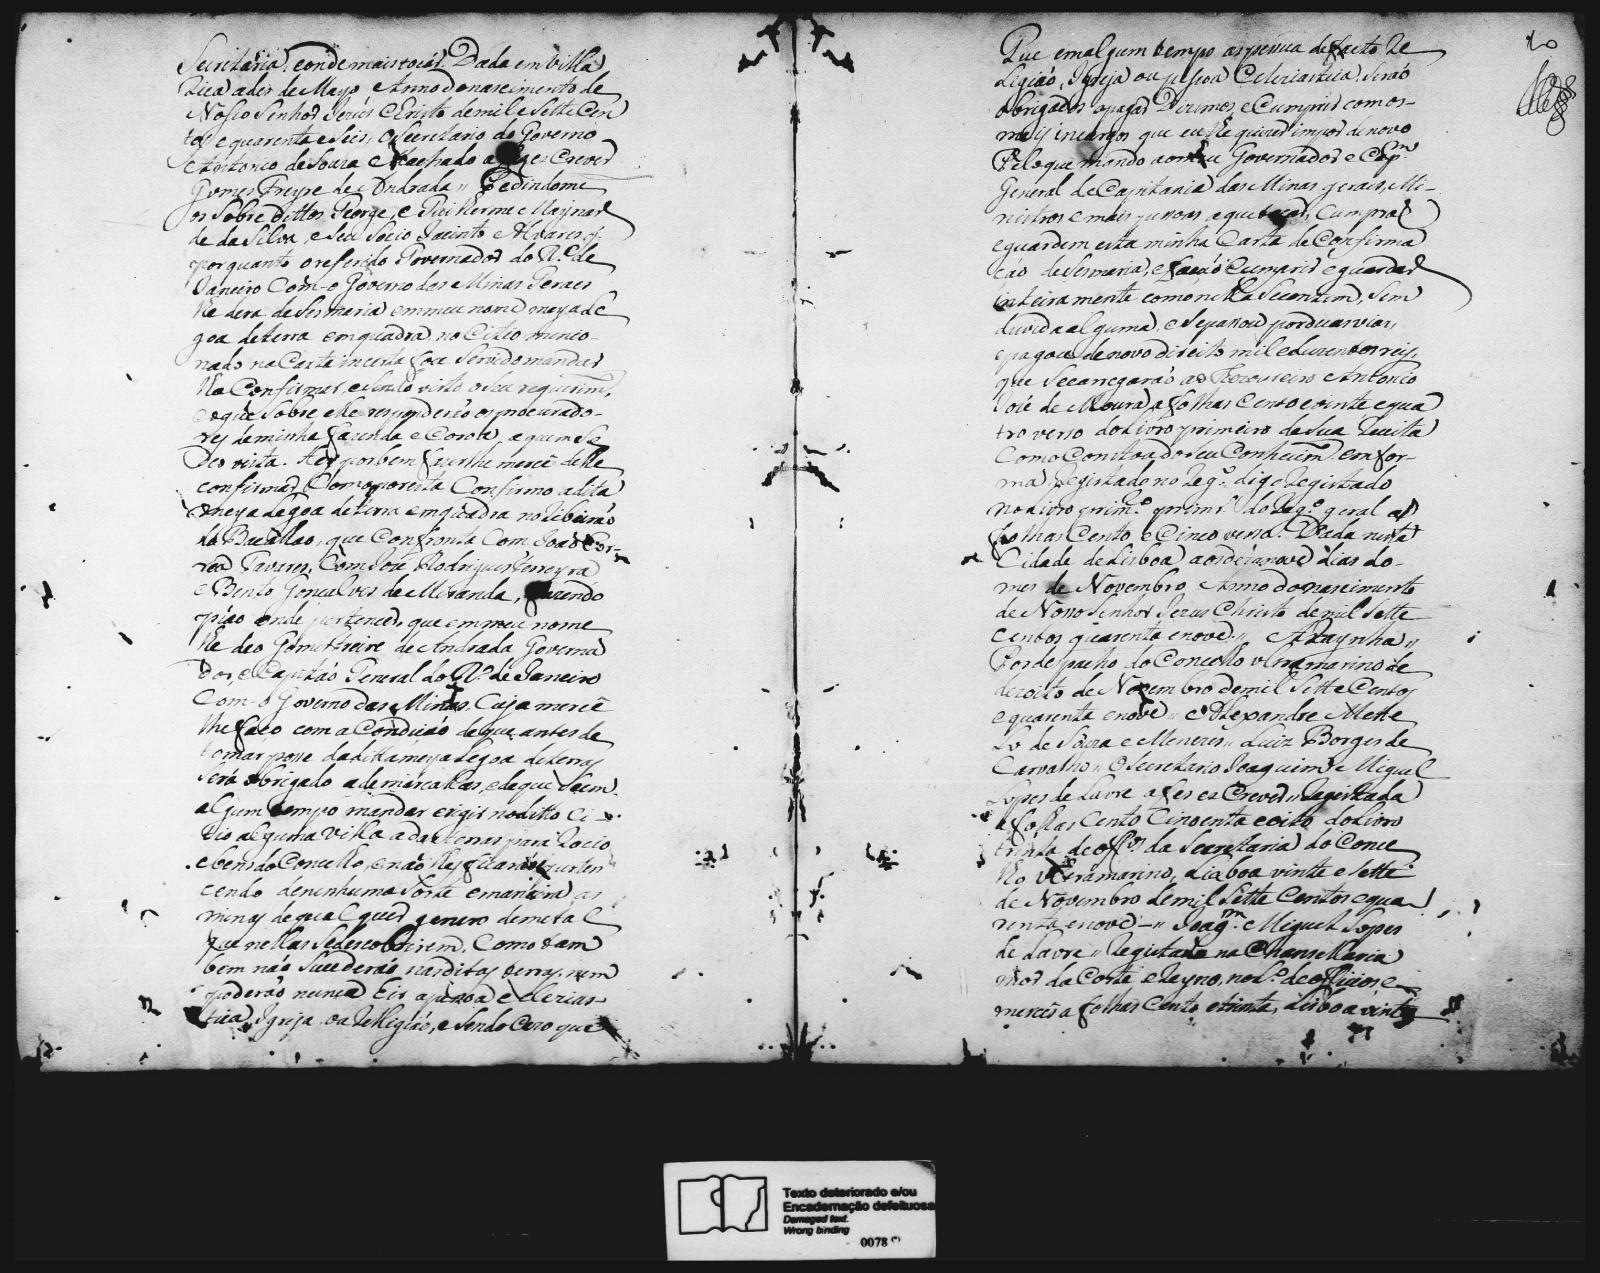 Secretaria, e onde mais tocár. Dada em Villa
Rica a des de Mayo Anno do nascimento de
Nosso Senhor Jesús Christo de mil e Sette Cen
tos e quarenta e Seis, o Secretario do Governo
Antonio de Souza Machado a fes es Crever
Gomes Freyre de Andrada,, Pedindome
os Sobre dittos George, e Guilherme Maynar
de da Silva, e Seu Socio Jacinto Alvares q.
por quanto o referido Governador do R.º de
Janeiro Com o Governo das Minas Geraes
lhe dera de Sesmaria em meu nome meya Le
goa de terra em quadra no Citio mencio-
nado na Carta incerta foce Servido mandar
lha Confirmar, e Sendo visto o Seu requerim.to
e o que Sobre elle responderão os procurado-
res de minha fazenda e Coroa, a quem Se
deo vista. Hey por bem fazerlhe mercê de lhe
confirmar Como por esta Confirmo a dita
meya Legoa de terra em quadra no Ribeirão
do Bacalhao, que Confronta Com João Cor-
rea Tavares, Com José Rodrigues Ferreyra
e Bento Gonçalves de Miranda, fazendo
pião onde pertencer, que em meu nome
lhe deo Gomes Freire de Andrada Governa
dor, e Capitão General do R.º de Janeiro
Com o Governo das Minas. Cuja mercê
lhe faço com a Condição de que antes de
tomar posse da ditta meya Legoa de terras
Será obrigado a demarcallas, e de que Se em
algum tempo mandar erigir no ditto Ci-
tio alguma Villa a da terras para Rocio
e bens do Concelho, e não lhes ficarão perten
cendo de nenhuma Sorte e maneira as
minas de qual quer genero de metal
que nellas Se descobrirem, Como tam
bem não Sucederáo nas ditas terras nem
poderáo nunca Eir a pessoa Eclezias-
tica, Igreja, ou Relligião, e Sendo Cazo que
20
Que em algum tempo as pessua de facto Re
ligião, Igreja ou pessoa Eclesiastica, Seráo
obrigados a pagar Dizimos, e Cumprir com os-
mais incargos que eu lhe quizer impor de novo
Pelo que mando ao meu Governador e Cap.m
General da Capitania das Minas geraes, Mi-
nistros e mais pessoas a que tocar, Cumprão
e guardem esta minha Carta de Confirma
ção de Sesmaria, e fação Cumprir e guardar
inteiramente como nella Se contem, Sem
duvida alguma, e Se passou por duas vias,
e pagou de novo direito mil e duzentos reis,
que Se carregaráo ao Thezoureiro Antonio
José de Moura, a folhas Cento e vinte e qua
tro verso do Livro primeiro de Sua Receita
Como Constou do Seu Conhecim.to em for-
ma Registado no Reg.º digo Registado
no Livro prim.º do Reg.º geral a
folhas Cento e Cinco verso. Dada nesta
Cidade de Lisboa aos dezanove dias do-
mes de Novembro Anno do nascimento
de Nosso Senhor Jezus Christo de mil Sette
Centos quarenta e nove,, A Raynha,,
Por despacho do Concelho Ultramarino de
dezoito de Novembro de mil Sette Centos
e quarenta e nove,, Alexandre Mette
lo de Souza e Menezes,, Luiz Borges de
Carvalho,, O Secretario Joaquim Miguel
Lopes de Lavre a fes es Crever,, Registada
a folhas Cento Cincoenta e oito do Livro
trinta de off.os da Secretaria do Conce
lho Ultramarino, Lisboa vinte e Sette
de Novembro de mil Sette Centos e qua
renta e nove -,, Joaq.m Miguel Lopes
de Lavre,, Registada na Chansellaria
mor da Corte e Reyno, no L.º de officios e
mercês a folhas Cento e trinta, Lisboa vinte
Texto deteriorado e/ou
Encadernação defeituosa
Damaged text.
Wrong binding
0078